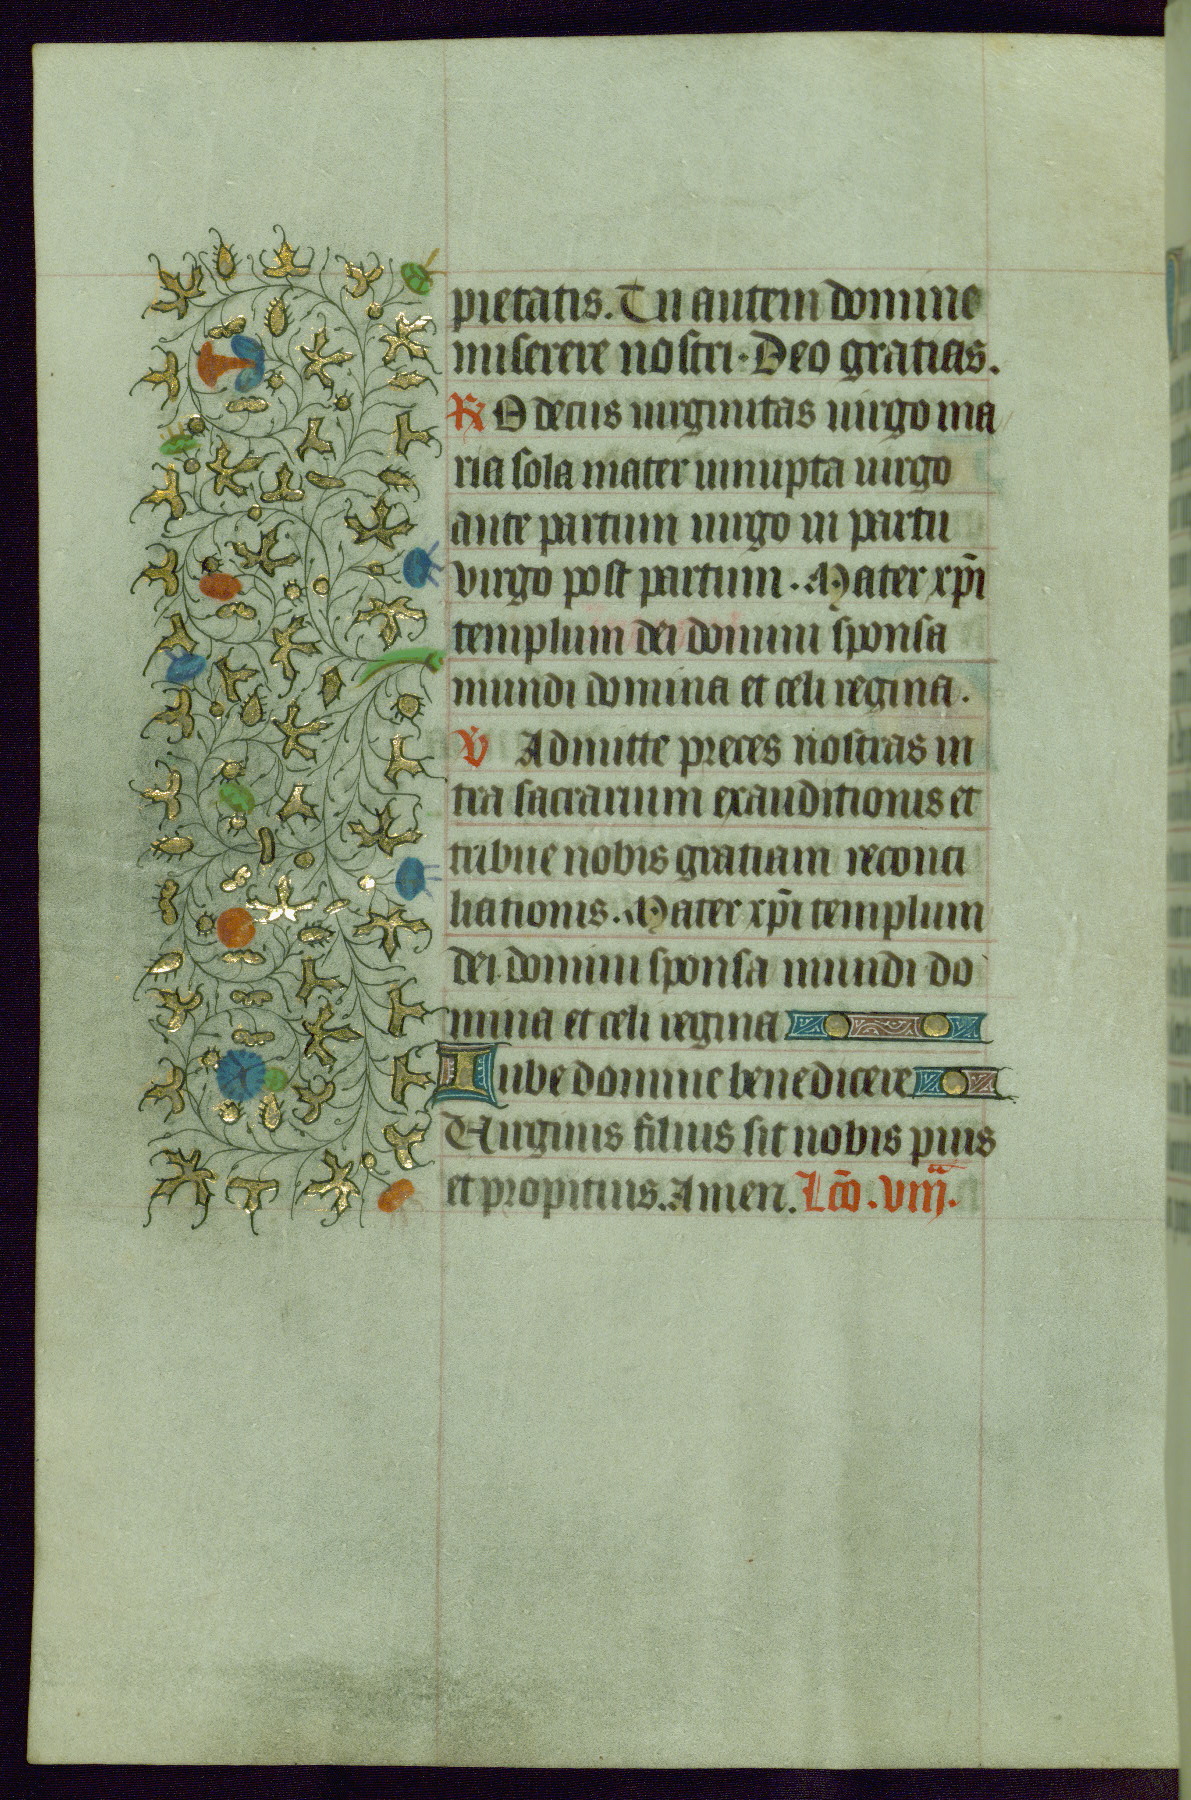 pietatis. Tu autem domine
miserere nostri. Deo gratias.
R O decus uirginitas uirgo ma
ria sola mater innupta uirgo
ante partum uirgo in partu
virgo post partum. Mater xp̄i
templum dei domini sponsa
mundi domina et celi regina.
V Admitte preces nostras in
tra sacrarium exauditionis et
tribue nobis gratiam reconci
liationis. Mater xp̄i templum
dei domini sponsa mundi do
mina et celi regina
Iube domine benedicere
Uirginis filius sit nobis pius
et propitius. Amen. Lc̄o. viii.